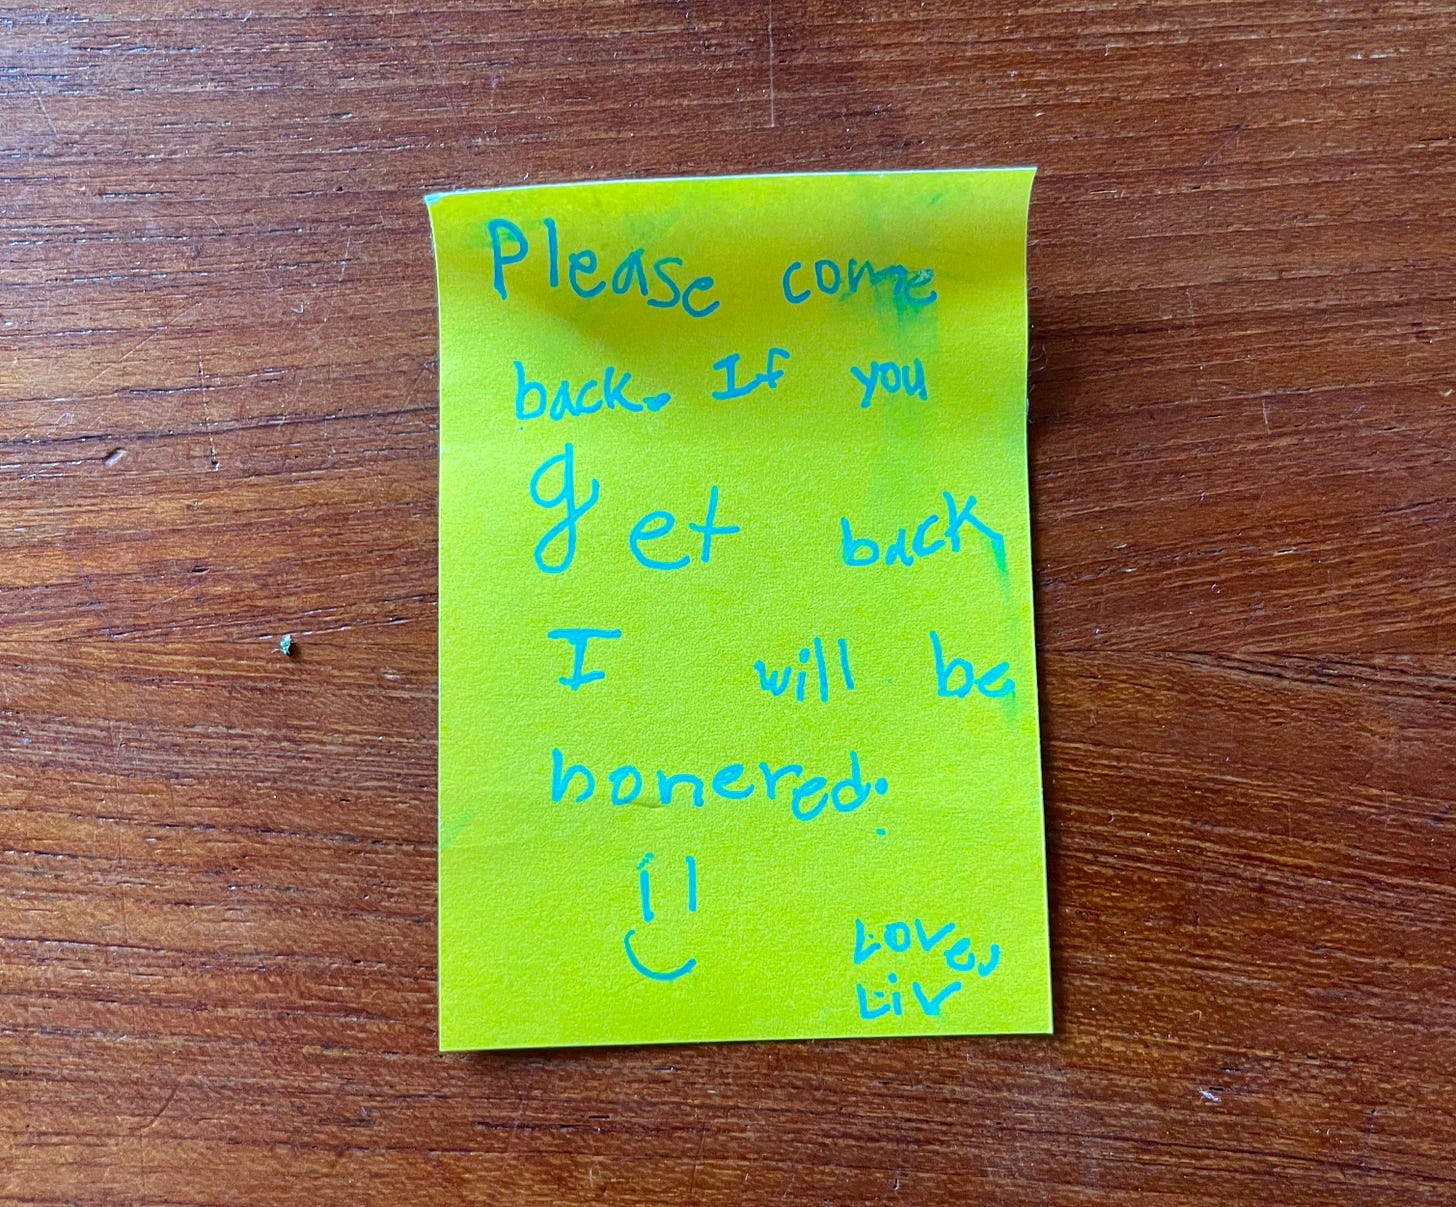 Please come
back. If you
get back
I will be
honered.
Love,
Liv